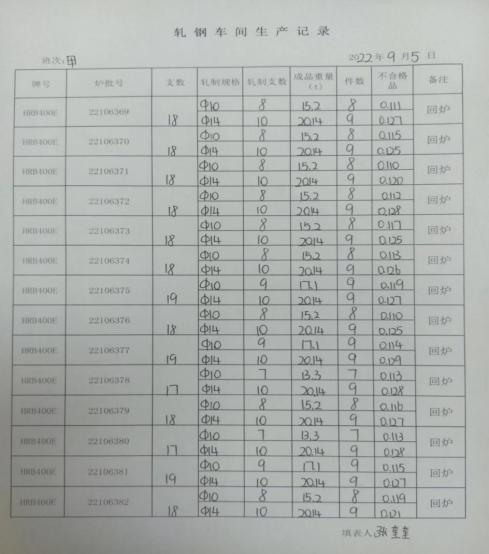 轧钢车间生产记录
班次:甲 2022年9月5日
牌号 炉批号 支数 轧制规格 轧制支数 成品重量(t) 件数 不合格品 备注
HRB400E 22106369 18 Φ10 8 15.2 8 0.111 回炉
Φ14 10 20.14 9 0.127
HRB400E 22106370 18 Φ10 8 15.2 8 0.115 回炉
Φ14 10 20.14 9 0.125
HRB400E 22106371 18 Φ10 8 15.2 8 0.110 回炉
Φ14 10 20.14 9 0.120
HRB400E 22106372 18 Φ10 8 15.2 8 0.112 回炉
Φ14 10 20.14 9 0.128
HRB400E 22106373 18 Φ10 8 15.2 8 0.117 回炉
Φ14 10 20.14 9 0.125
HRB400E 22106374 18 Φ10 8 15.2 8 0.113 回炉
Φ14 10 20.14 9 0.126
HRB400E 22106375 19 Φ10 9 17.1 9 0.119 回炉
Φ14 10 20.14 9 0.127
HRB400E 22106376 18 Φ10 8 15.2 8 0.110 回炉
Φ14 10 20.14 9 0.125
HRB400E 22106377 19 Φ10 9 17.1 9 0.114 回炉
Φ14 10 20.14 9 0.129
HRB400E 22106378 17 Φ10 7 13.3 7 0.113 回炉
Φ14 10 20.14 9 0.128
HRB400E 22106379 18 Φ10 8 15.2 8 0.116 回炉
Φ14 10 20.14 9 0.127
HRB400E 22106380 17 Φ10 7 13.3 7 0.113 回炉
Φ14 10 20.14 9 0.128
HRB400E 22106381 19 Φ10 9 17.1 9 0.115 回炉
Φ14 10 20.14 9 0.127
HRB400E 22106382 18 Φ10 8 15.2 8 0.119 回炉
Φ14 10 20.14 9 0.121
填表人:张奎奎